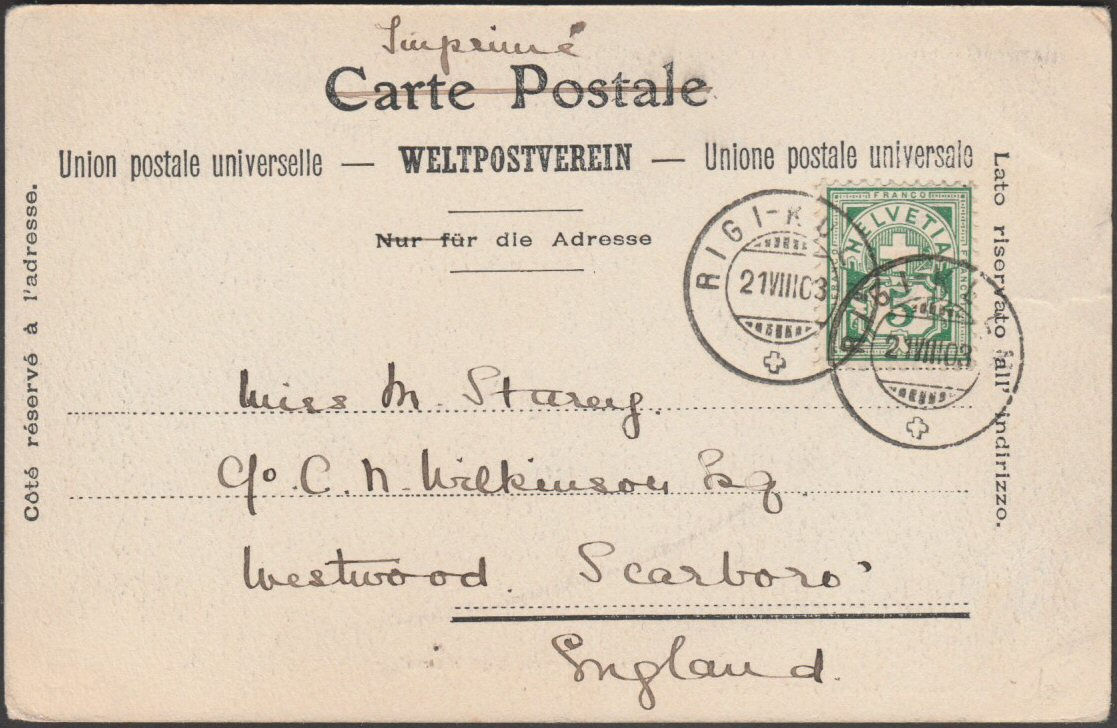 Imprimé
Carte Postale
Union postale universelle — WELTPOSTVEREIN — Unione postale universale
Nur für die Adresse
Côté réservé à l'adresse.
Lato riservato all' indirizzo.
RIGI-KU
21VIII03
FRANCO
HELVETIA
5
RIGI-KUL
21VIII03
Miss M. Starey.
c/o C. N. Wilkinson Esq.
Westwood. Scarboro'
England